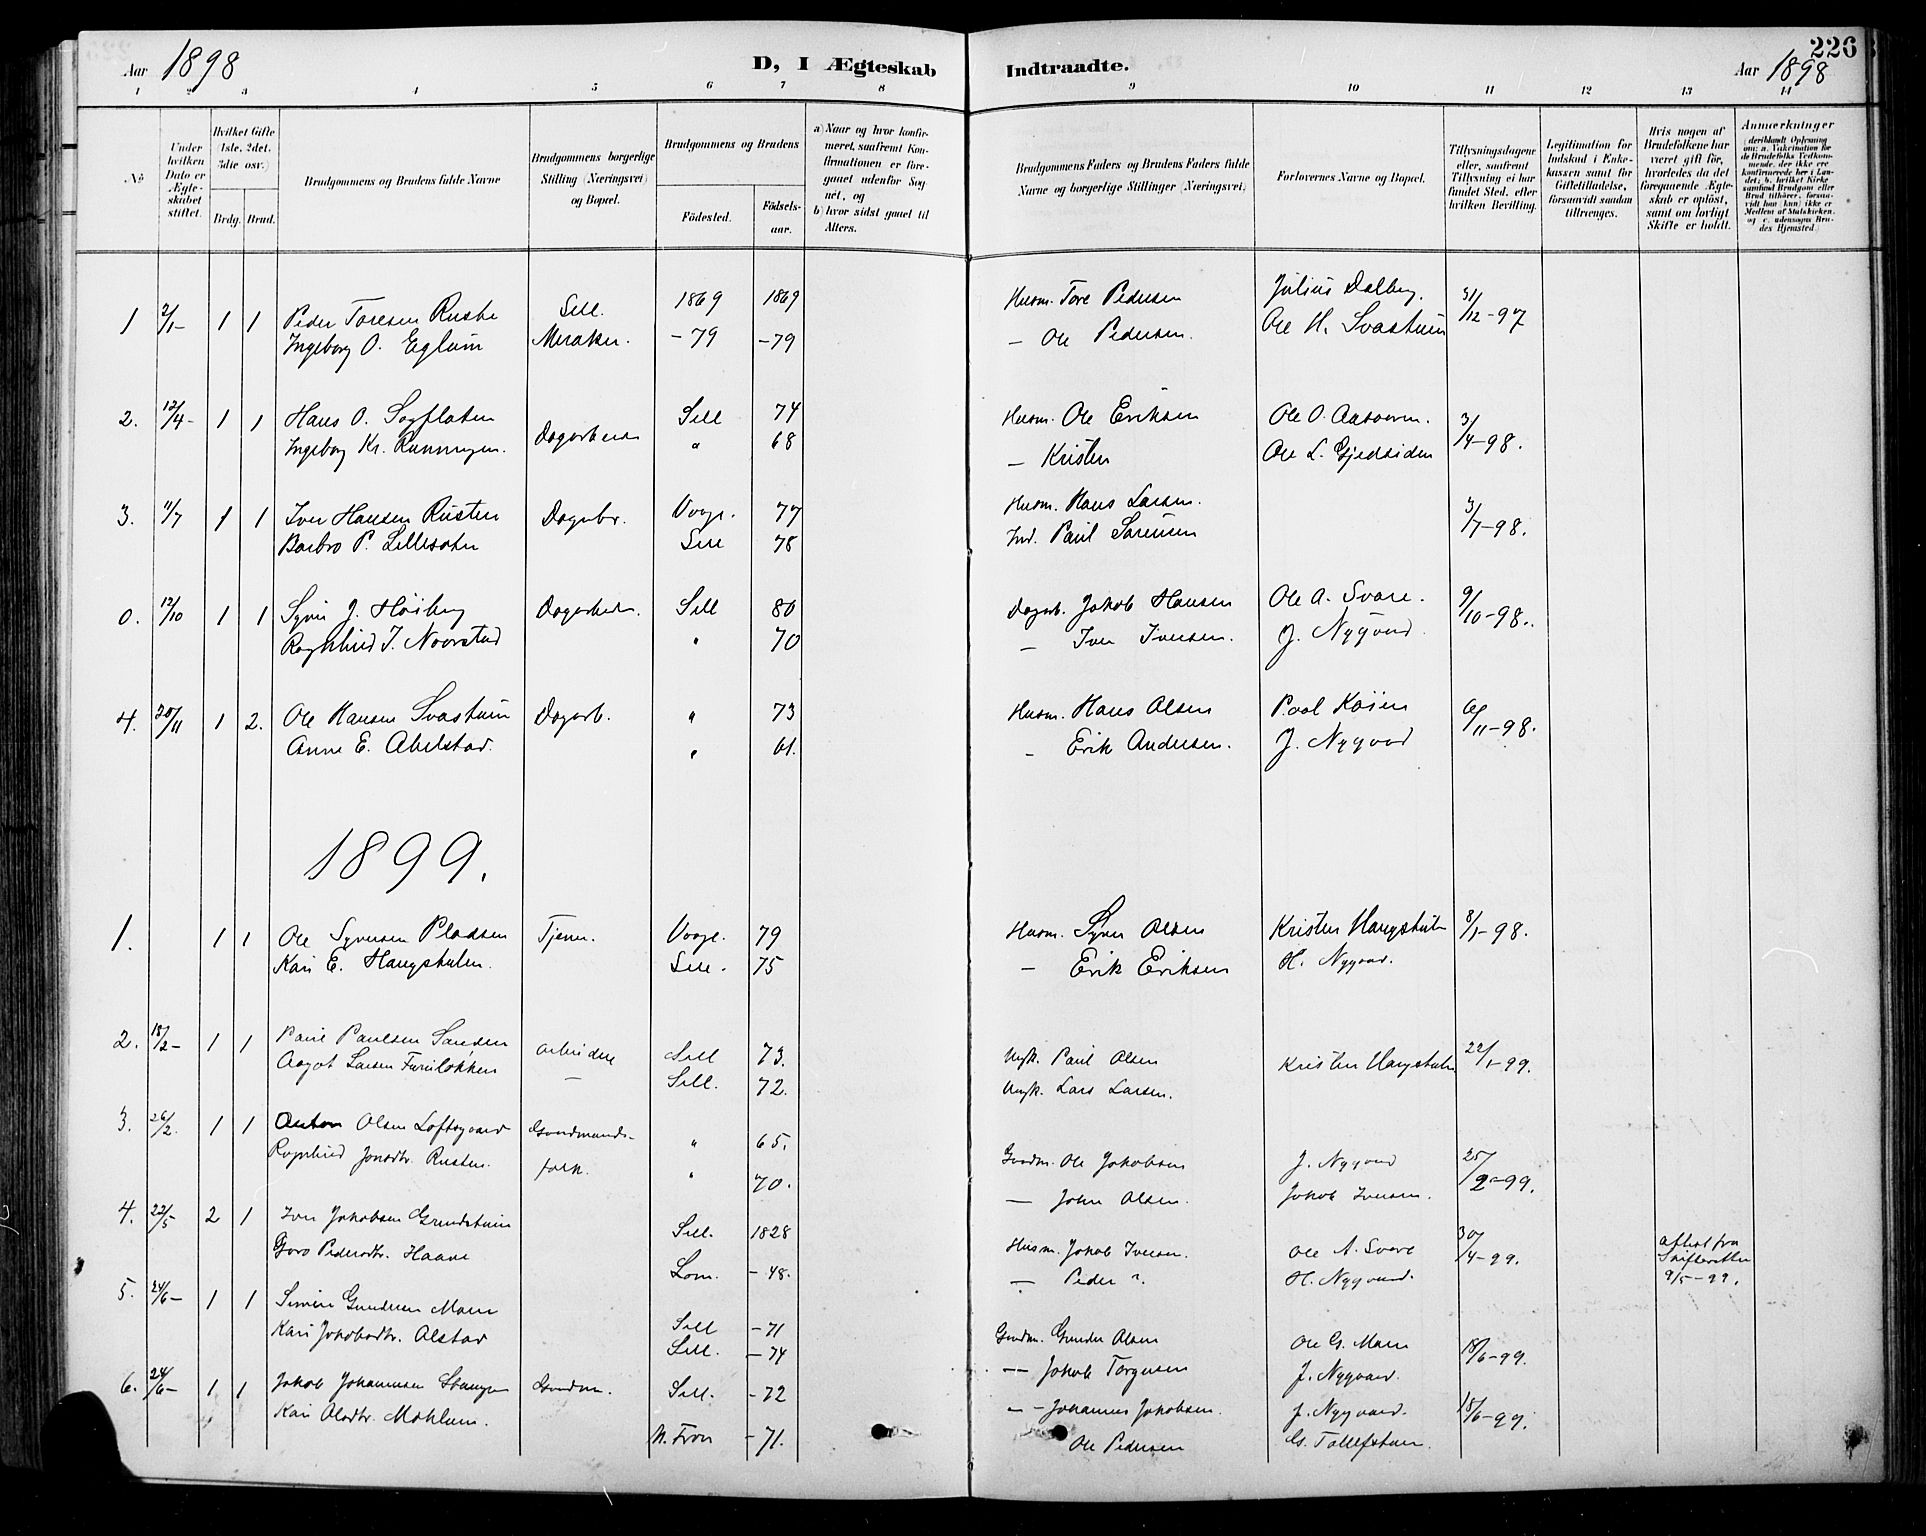 226
Aar 1898
D, I Ægteskab Indtraadte.
Aar 1898
1 2 3 4 5 6 7 8 9 10 11 12 13 14
No
Under hvilken Dato er Ægteskabet stiftet.
Hvilket Gifte (1ste, 2det, 3die osv.)
Brdg. Brud.
Brudgommens og Brudens fulde Navne
Brudgommens borgerlige Stilling (Næringsvei) og Bopæl.
Brudgommens og Brudens
Födested.
Födselsaar.
a) Naar og hvor konfirmeret, saafremt Konfirmationen er foregaaet udenfor Sognet, og
b) hvor sidst gaaet til Alters.
Brudgommens Faders og Brudens Faders fulde Navne og borgerlige Stillinger (Næringsvei)
Forlovernes Navne og Bopæl.
Tillysningsdagene eller, saafremt Tillysning ei har fundet Sted, efter hvilken Bevilling.
Legitimation for Indskud i Enkekassen samt for Giftetilladelse, forsaavidt saadan tiltrænges.
Hvis nogen af Brudefolkene har været gift för, hvorledes da det foregaaende Ægteskab er oplöst, samt om lovligt Skifte er holdt.
Anmerkninger
1 2/1- 1 1 Peder Toresen Ruste Sell. 1869 1869 Husm. Tore Pedersen Julius Dalberg. 31/12-97
Ingeborg O. Eglum Meraker. -79 -79 — Ole Pedersen. Ole H. Svastuin
2. 12/4- 1 1 Hans O. Sagflaten Dagarbeid Sell 74 Husm. Ole Eriksen Ole O. 3/4-98.
Ingeborg Kr. " 68 — Kristen Ole L. Gjedsiden
3. 11/7 1 1 Iver Hansen Rusten Dagarbr. Vaage. 77 Husm. Hans Larsen. 3/7-98.
Barbro P. Lillesæter Sell 78 Ind. Paul
0. 12/10 1 1 Syver J. Höiberg Dagarbeid. Sell 80 Dagarb. Jakob Hansen Ole A. Svare. 9/10-98.
Ragnhild I. Noorstad " 70 — Iver Iversen. J. Nygaard
4. 20/11 1 2. Ole Hansen Svastuin Dagarb. " 73 Husm. Hans Olsen 6/11-98.
Anne E. Abelstad. " 61. — Erik Andersen. J. Nygaard
1899.
1. 1 1 Ole Syversen Pladsen Tjener. Vaage. 79 Husm. Syver Olsen Kristen Haugstulen 8/1-98.
Kari E. Haugstulen. Sell. 75 — Erik Eriksen H. Nygaard.
2. 18/2- 1 1 Paul Paulsen Sanden arbeidere Sell 73. Ungk. Paul Olsen Kristen Haugstulen 22/1-99.
Aagot Larsen Furuløkken — Sell. 72. Ungk. Lars Larsen.
3. 26/2. 1 1 Anton Olsen Loftsgaard Gaardmands- " 65. Gaardm. Ole Jakobsen J. Nygaard 25/2-99.
Ragnhild Jonsdtr. Rusten. folk. " 70. — John Olsen. Jakob Iversen.
4. 22/5 2 1 Iver Jakobsen Grindstuin Sell. 1828 Husm. Jakob Iversen. Ole A. Svare 30/4-99. attest fra
Goro Pedersdtr. Haave Lom. -48. — Peder ". H. Nygaard. Skifteretten
9/5-99.
5. 24/6- 1 1 Simen Gundersen Moen Sell -71 Gaardm. Gunder Olsen Ole G. Moen 18/6-99.
Kari Jakobsdtr. Alstad Sell. -74 — Jakob Torgersen J. Nygaard.
6. 24/6- 1 1 Jakob Johannesen Gaardm. Sell. -72 — Johannes Jakobsen. J. Nygaard. 18/6-99.
Kari Olsdtr. Mohlum. N. Fron -71. Ole Pedersen G. Tollefstuen.